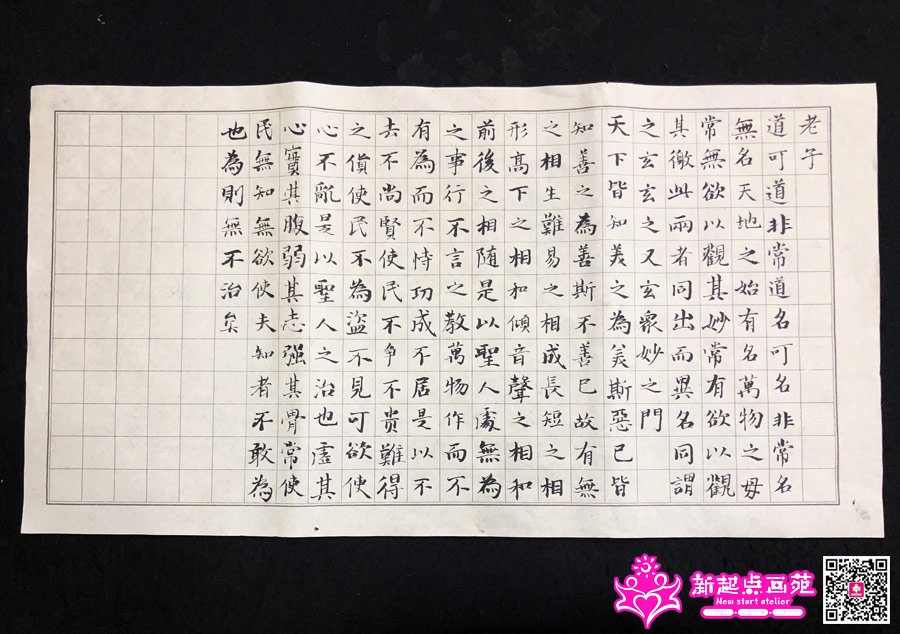 老子
道可道非常道名可名非常名
無名天地之始有名萬物之母
常無欲以觀其妙常有欲以觀
其徼此兩者同出而異名同謂
之玄玄之又玄眾妙之門
天下皆知美之為美斯惡已皆
知善之為善斯不善已故有無
之相生難易之相成長短之相
形髙下之相和傾音聲之相和
前後之相随是以聖人處無為
之事行不言之教萬物作而不
有為而不恃功成不居是以不
去不尚賢使民不争不贵難得
之貨使民不為盜不見可欲使
心不亂是以聖人之治也虛其
心實其腹弱其志强其骨常使
民無知無欲使夫知者不敢為
也為則無不治矣
新起点画苑
New start atelier